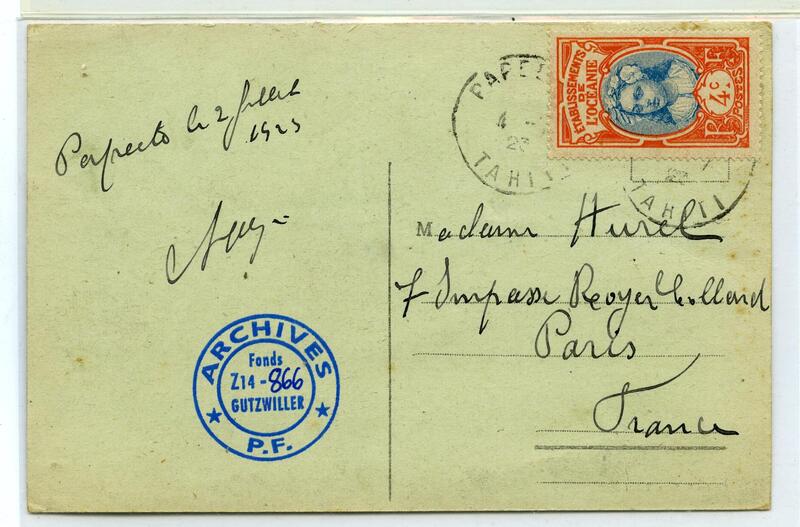 Papeete le 2 juillet
1923
ARCHIVES
Fonds
Z14-866
GUTZWILLER
P.F.
PAPEE
4
23
TAHITI
ETABLISSEMENTS
DE
L'OCÉANIE
RF
4c
POSTES
TAHITI
Madame Hurel
7 Impasse Royer Collard
Paris
France